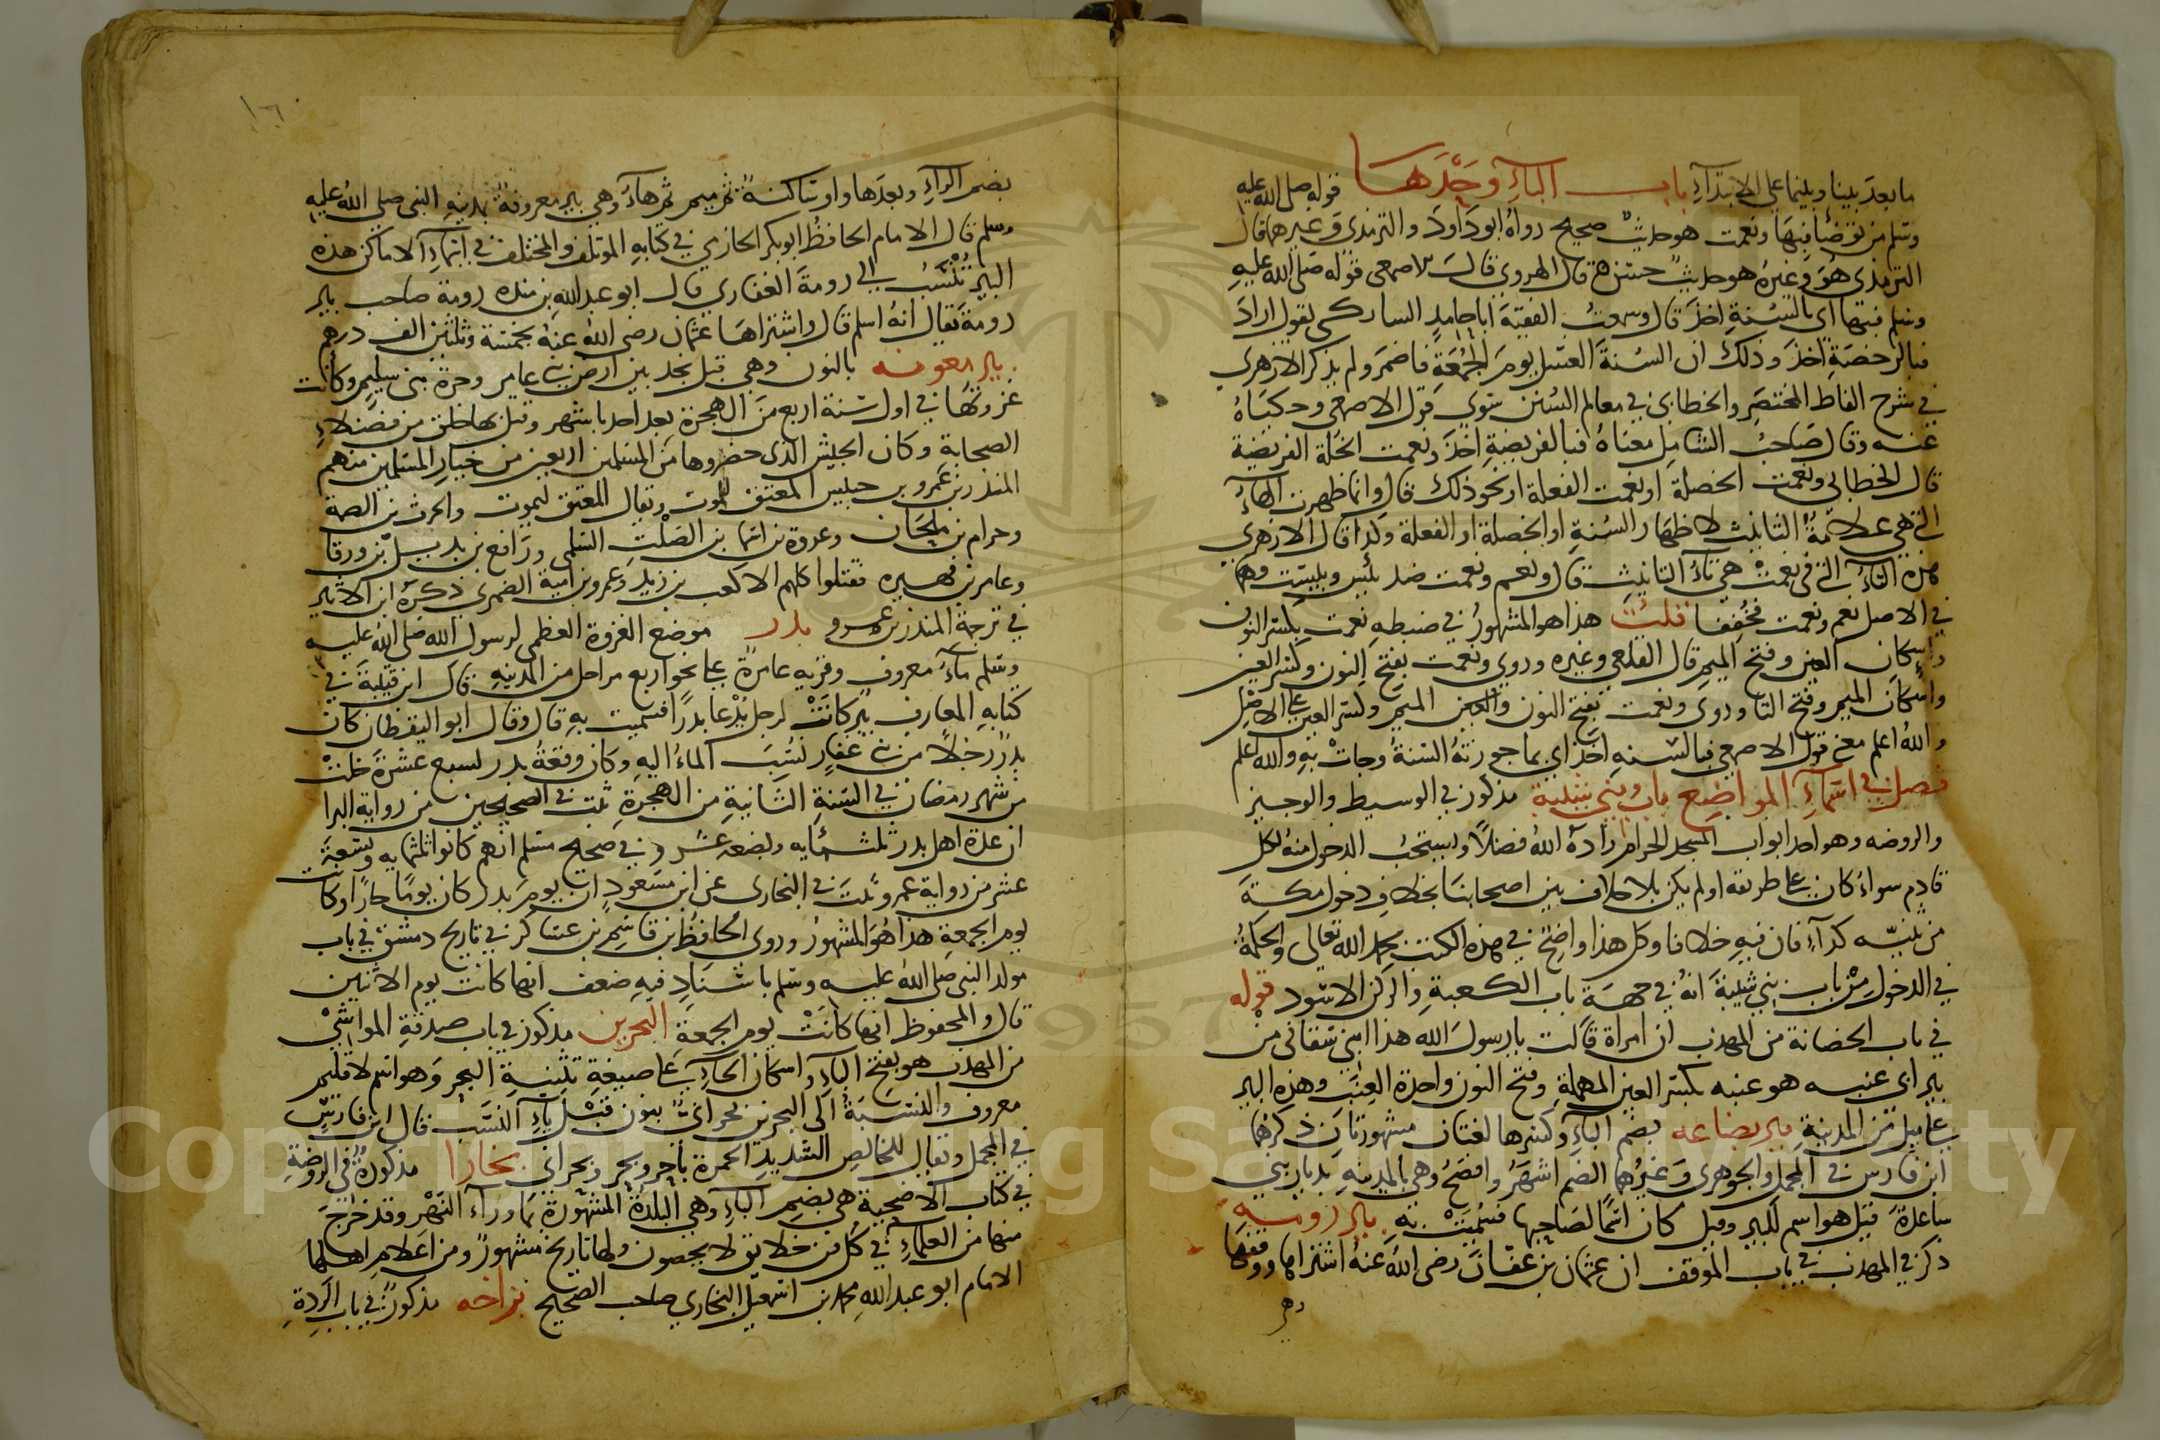 ما بعد بينا وبينما على الابتداء باب الباء وحدها قوله صلى الله عليه
وسلم من توضأ فبها ونعمت هو حديث صحيح رواه ابو داود والترمذي وغيرهما قال
الترمذي هو وغيره هو حديث حسن قال الهروي قال الاصمعي قوله صلى الله عليه
وسلم فبها اي بالسنة اخذ قال وسمعت الفقيه ابا حامد الساركي يقول اراد
فبالرخصة اخذ وذلك ان السنة الغسل يوم الجمعة فاضمر ولم يذكر الازهري
في شرح الفاظ المختصر والخطابي في معالم السنن سوي قول الاصمعي وحكياه
عنه وقال صاحب الشامل معناه فبالفريضة اخذ ونعمت الخلة الفريضة
قال الخطابي ونعمت الخصلة او نعمت الفعلة او نحو ذلك قال وانما ظهرت الهاء
التي هي علامة التانيث لاظهار السنة او الخصلة او الفعلة وكذا قال الازهري
هذه التاء التي في نعمت هي تاء التانيث قال ونعم ونعمت ضد بئس وبيست وهما
في الاصل نعم ونعمت مخففا قلت هذا هو المشهور في ضبطه نعمت بكسر النون
واسكان العين وفتح الميم قال القلعي وغيره وروي ونعمت بفتح النون وكسر العين
واسكان الميم وفتح التا وروي ونعمت بفتح النون والعين الميم وكسر العين على الاصل
والله اعلم معنى قول الاصمعي فبالسنه اخذ اي بما جوزته السنة وجات به والله اعلم
فصل في اسماء المواضع باب بني شيبة مذكور في الوسيط والوجيز
والروضه وهو احد ابواب المسجد الحرام زاده الله فضلا ويستحب الدخول منه لكل
قادم سواء كان على طريقه او لم يكن بلا خلاف بين اصحابنا بخلاف دخول مكة
من ثنيه كداء فان فيه خلافا وكل هذا واضح في هذه الكتب بحمد الله تعالى والحكمة
في الدخول من باب بني شيبة انه في جهة باب الكعبة والركن الاسود قوله
في باب الحضانة من المهذب ان امراة قالت يا رسول الله هذا ابني سقاني من
بير ابي عنبه هو عنبه بكسر العين المهملة وفتح النون واحدة العنب وهذه البير
على ميل من المدينة بير بضاعه بضم الباء وكسرها لغتان مشهورتان ذكرهما
ابن فارس في المجمل والجوهري وغيرهما الضم اشهر وافصح وهي بالمدينه بديار بني
ساعدة قيل هو اسم للبير وقيل كان اسما لصاحبها فسميت به بير رومه
ذكر في المهذب في باب الموقف ان عثمان بن عفان رضي الله عنه اشتراها ووقفها
بضم الراء وبعدها واو ساكنة ثم ميم ثم هاء وهي بير معروفة بمدينه النبي صلى الله عليه
وسلم قال الامام الحافظ ابو بكر الحازمي في كتابه المؤتلف والمختلف في اسماء الاماكن هذه
البير تنسب الى رومة الغفاري قال ابو عبد الله بن منده رومة صاحب بير
رومة يقال انه اسلم قال واشتراها عثمان رضي الله عنه بخمسة وثلثين الف درهم
بير معونه بالنون وهي قبل نجد بين ارض بني عامر وحرة بني سليم وكانت
غزوتها في اول سنة اربع من الهجرة بعد احد باشهر وقتل بها خلق من فضلاء
الصحابة وكان الجيش الذي حضروها من المسلمين اربعين من خيار المسلمين منهم
المنذر بن عمرو بن خنيس المعتق للموت ويقال المعتق ليموت والحرث بن الصمة
وحرام بن ملحان وعروة بن اسما بن الصلت السلمي ورافع بن بديل بن ورقا
وعامر بن فهيره فقتلوا كلهم الا كعب بن زيد وعمرو بن امية الضمري ذكره ابن الاثير
في ترجمة المنذر بن عمرو بدر موضع الغزوة العظمى لرسول الله صلى الله عليه
وسلم ماء معروف وقريه عامرة على نحو اربع مراحل من المدينه قال ابن قتيبة في
كتابه المعارف بير كانت لرجل يدعا بدرا فسميت به قال وقال ابو اليقظان كان
بدر رجلا من بني غفار نسب الماء اليه وكان وقعة بدر لسبع عشرة خلت
من شهر رمضان في السنة الثانية من الهجرة ثبت في الصحيحين من رواية البرا
ان عدة اهل بدر ثلثمائه وبضعه عشر وفي صحيح مسلم انهم كانوا ثلثمايه وتسعة
عشر من رواية عمر وثبت في البخاري عن ابن مسعود ان يوم بدر كان يوما حارا وكانت
يوم الجمعة هذا هو المشهور وروى الحافظ بن قاسم بن عساكر في تاريخ دمشق في باب
مولد النبي صلى الله عليه وسلم باسناد فيه ضعف انها كانت يوم الاثنين
قال والمحفوظ انها كانت يوم الجمعة البحرين مذكور في باب صدقة المواشي
من المهذب هو بفتح الباء واسكان الحاء على صيغة تثنية البحر وهو اسم لاقليم
معروف والنسبة الى البحرين بحراني بنون قبل ياء النسب قال ابن فارس
في المجمل ويقال للخالص الشديد الحمرة باحر وبحر وبحراني بخارا مذكورة في الروضة
في كتاب الاضحية هي بضم الباء وهي البلدة المشهورة بما وراء النهر وقد خرج
منها من العلماء في كل فن خلائق لا يحصون ولها تاريخ مشهور ومن اعلام اهلها
الامام ابو عبد الله محمد بن اسمعيل البخاري صاحب الصحيح بزاخه مذكور في باب الردة